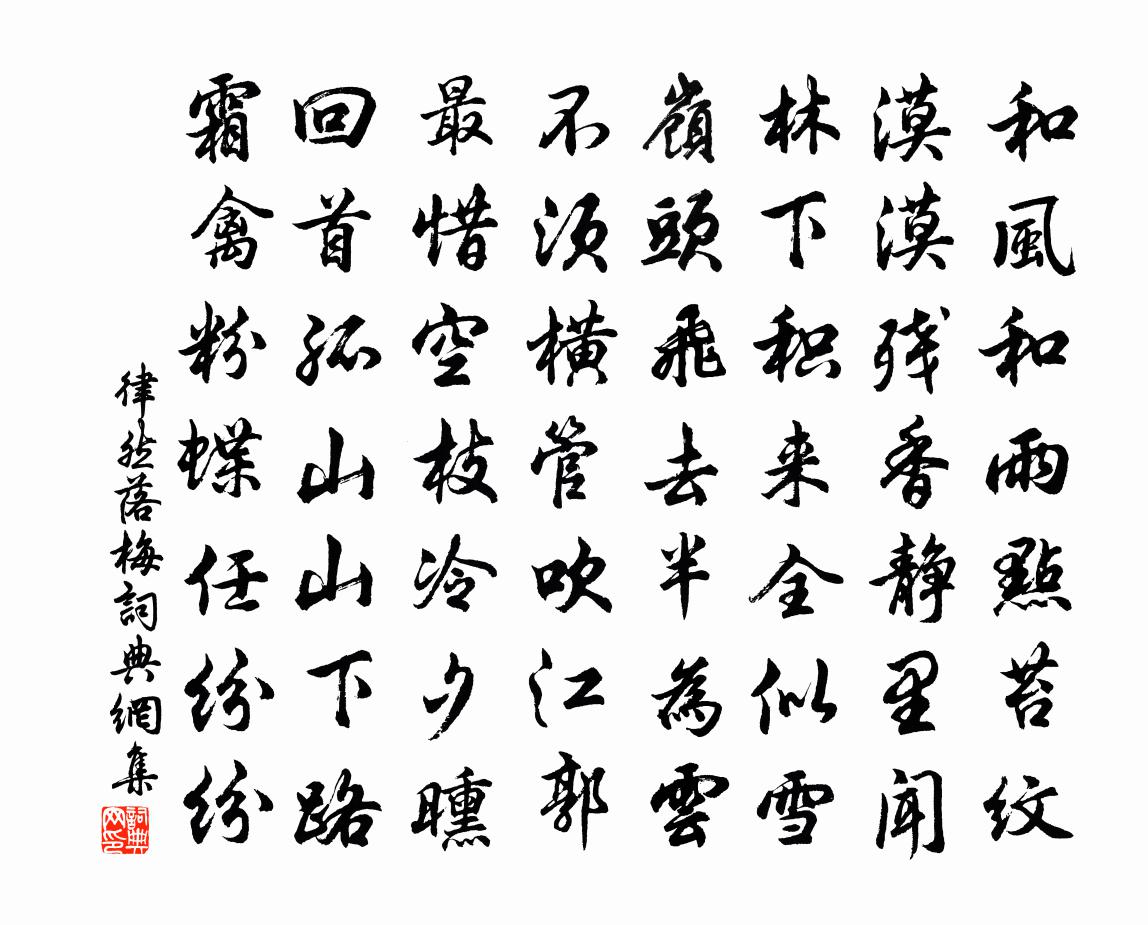 和風和雨點苔紋
漠漠残香静里闻
林下积来全似雪
嶺頭飛去半為雲
不须横管吹江郭
最惜空枝冷夕曛
回首孤山山下路
霜禽粉蝶任纷纷
律然落梅詞典網集
詞典网印